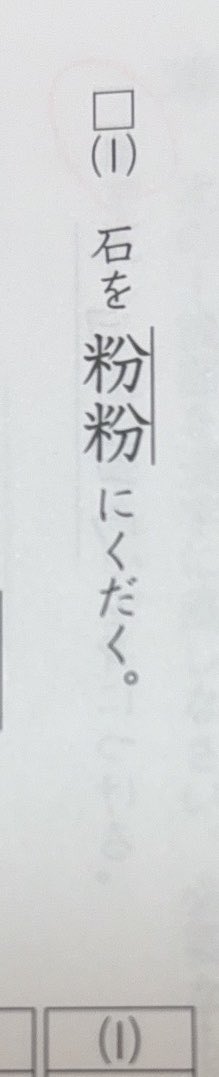 □
(1) 石を粉粉にくだく。
(1)